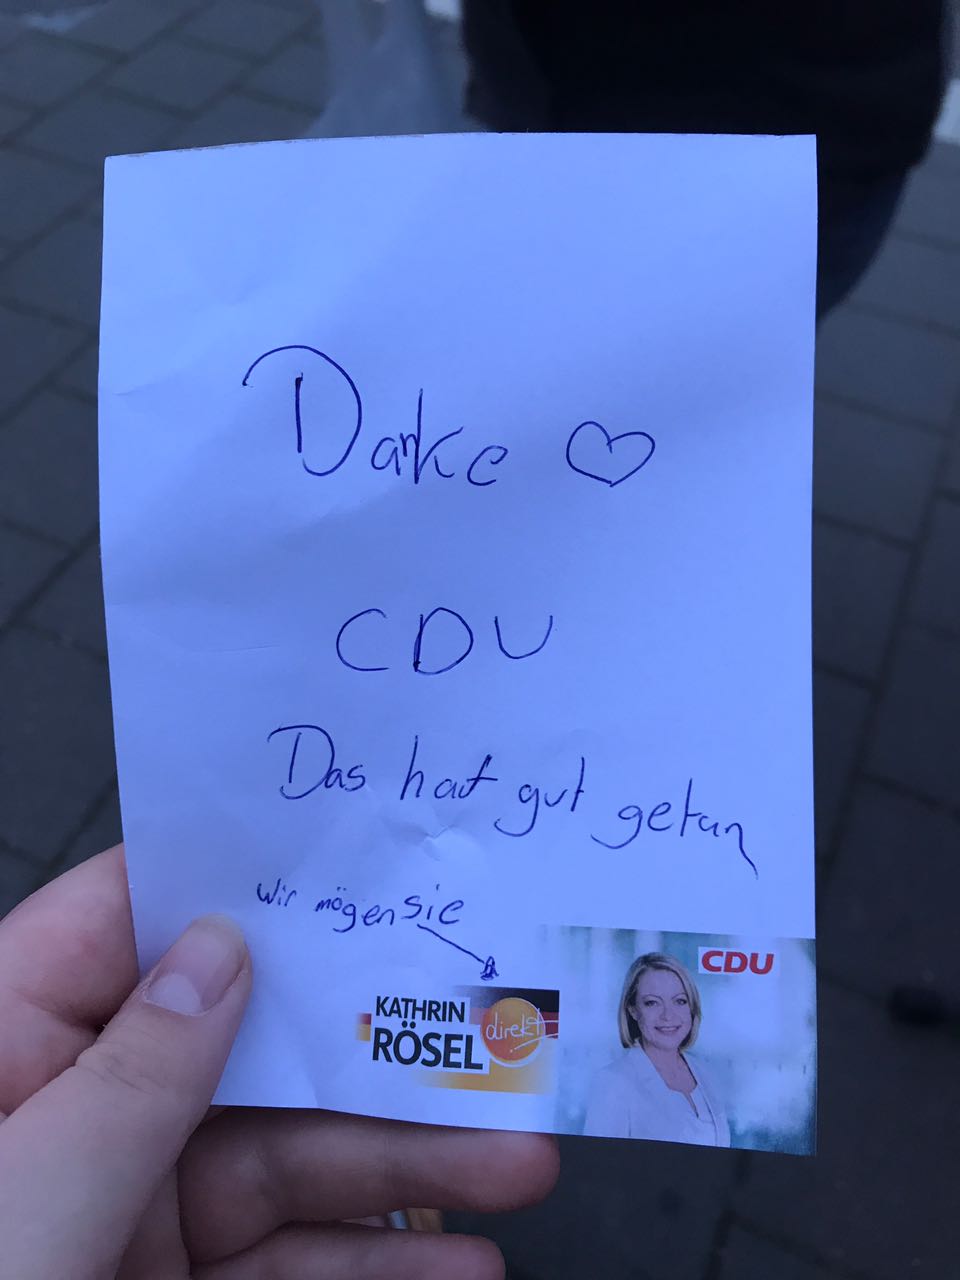 Danke ♡
CDU
Das hat gut getan
wir mögen sie
CDU
KATHRIN
RÖSEL
direkt